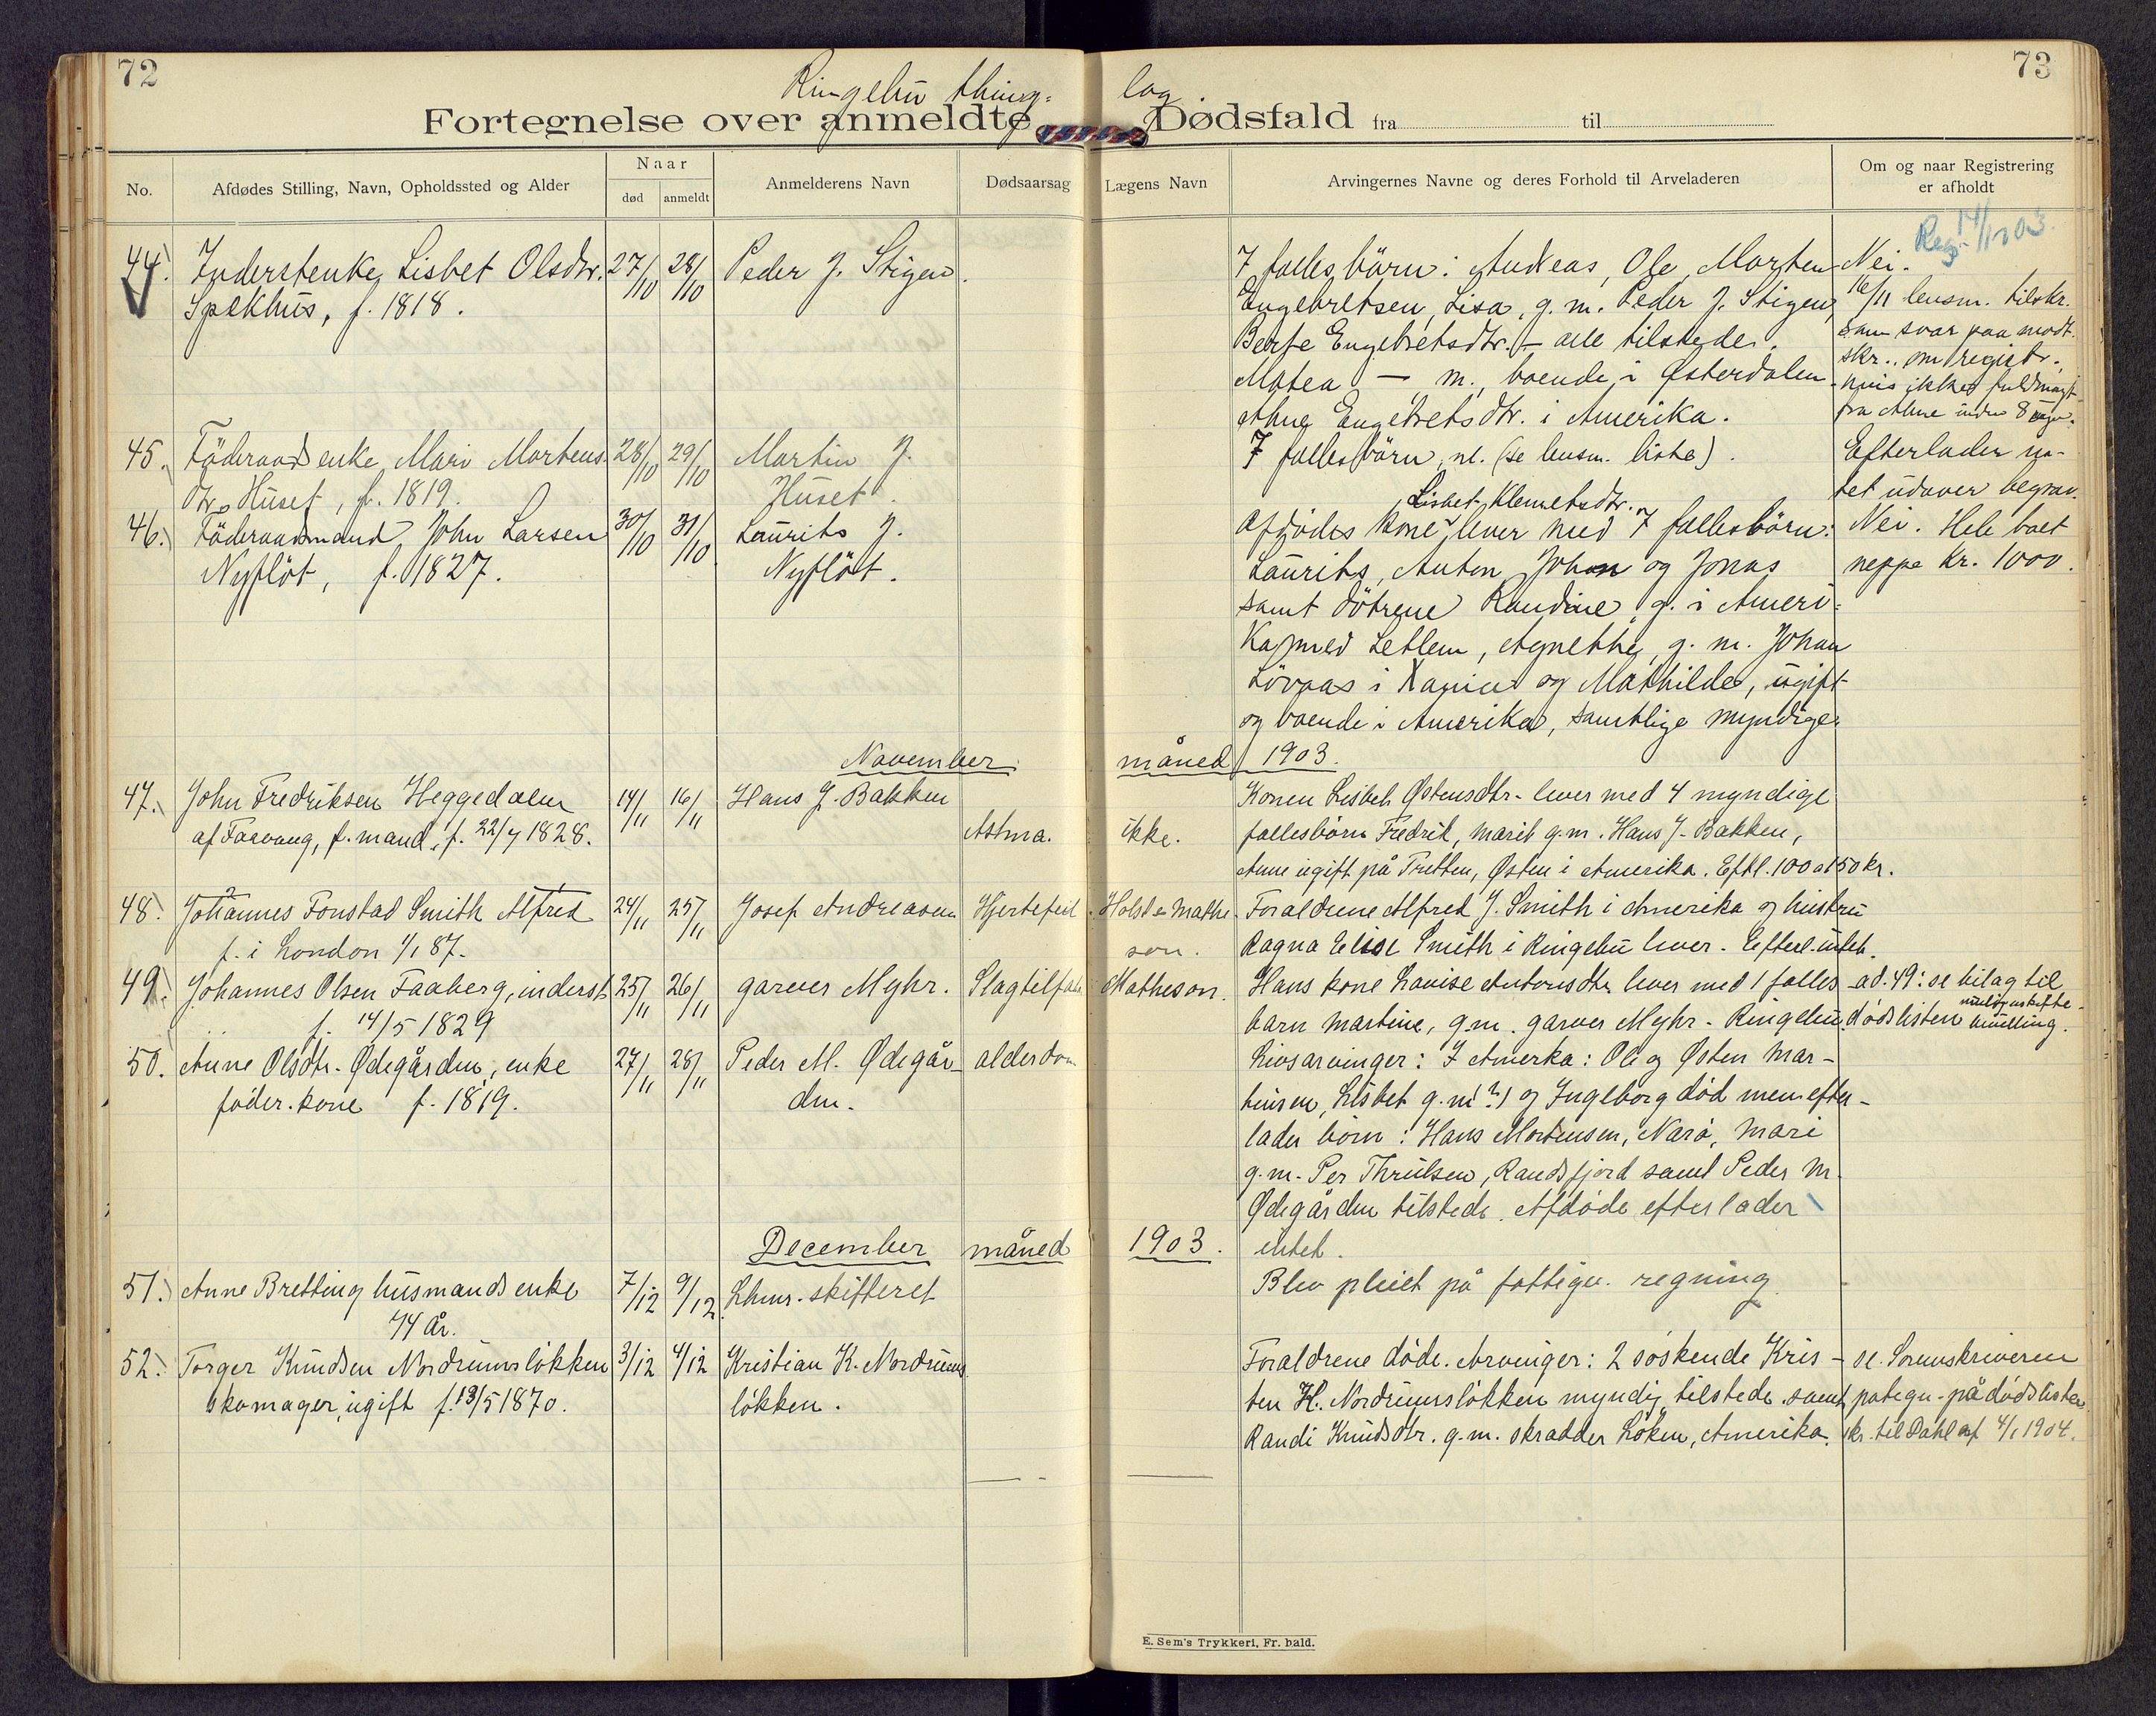 72
73
Ringebu thing-
lag
Fortegnelse over anmeldte
Dødsfald fra
til
No.
Afdødes Stilling, Navn, Opholdssted og Alder
Naar
død
anmeldt
Anmelderens Navn
Dødsaarsag
Lægens Navn
Arvingernes Navne og deres Forhold til Arveladeren
Om og naar Registrering
er afholdt
44. Inderstenke Lisbet Olsdtr. 27/10 28/10 Peder J. Stigen.
Spekhus, f. 1818.
7 fællesbörn: Andreas, Ole, Morten
Engebretsen, Lisa, g. m. Peder J. Stigen,
Berte Engebretsdtr. – alle tilstede.
Matea — m., boende i Østerdalen
Ahne Engebretsdtr. i Amerika.
Reg. 14/1 203
Nei.
16/11 lensm. tilskr.
svar paa modt.
skr. om registr.
hvis ikke fuldmagt
fra Ahne inden 8 dage.
45. Föderaadsenke Mari Mortens- 28/10 29/10 Martin J.
dtr. Huset, f. 1819.
Huset.
7 fællesbörn, nl. (se lensm. liste).
Efterlader in-
tet udover begrav.
46. Föderaadsmand John Larsen 30/10 31/10 Laurits J.
Nyflöt, f. 1827.
Nyflöt.
Lisbet Klemetsdtr.
Afdødes kone lever med 7 fællesbörn:
Laurits, Anton Johan og Jonas
samt døtrene Randine g. i Ameri-
ka med Letlem, Agnethe, g. m. Johan
Lövaas i og Mathilde, ugift
og boende i Amerika, samtlige myndige
Nei. Hele boet
neppe kr. 1000.
November
måned 1903.
47. John Fredriksen Heggedalen 14/11 16/11 Hans J. Bakken
af Faavang, f. mand, f. 22/7 1828.
Astma. ikke.
Konen Lisbet Østensdtr. lever med 4 myndige
fællesbörn Fredrik, Marit g.m. Hans J. Bakken,
Anne ugift på Tretten, Østen i Amerika. Eftl. 100 a 150 kr.
48. Johannes Fonstad Smith Alfred 24/11 25/11 Josef Andreasen Hjertefeil Holst & Mathe-
f. i London 1/1 87.
son.
Forældrene Alfred J. Smith i Amerika og hustru
Ragna Elise Smith i Ringebu lever. Efterl. intet.
49. Johannes Olsen Faaberg, inderst 25/11 26/11 garver Myhr. Slagtilfælde Matheson.
f. 14/5 1829
Hans kone Lovise Antonsdtr. lever med 1 fælles-
barn Martine, g.m. garver Myhr – Ringebu.
ad. 49: se bilag til
dødslisten
50. Anne Olsdtr. Ødegården, enke 27/11 28/11 Peder M. Ødegår- alderdom
föder.kone f. 1819.
den.
Livsarvinger: I Amerka: Ole og Østen Mar-
tinsen, Lisbet g.m(?) og Ingeborg död men efter-
lader börn: Hans Mortensen, Narå, Mari
g.m. Per Thrulsen, Randsfjord samt Peder M.
Ødegården tilstede. Afdöde efterlader
intet.
December måned
1903.
51. Anne Bretting husmandsenke 7/12 9/12 Lhmr. skifteret
74 år.
Blev pleiet på fattigv. regning.
52. Torger Knudsen Nordrumsløkken 3/12 4/12 Kristian K. Nordrums
skomager, ugift f. 13/5 1870.
løkken.
Forældrene døde. Arvinger: 2 söskende Kris-
ten K. Nordrumsløkken myndig, tilstede samt
Randi Knudsdtr. g.m. skrædder Löken, Amerika.
se Sorenskriveren
pategn. på dödslisten
skr. til Dahl af 4/1 1904.
E. Sem's Trykkeri, Fr.hald.